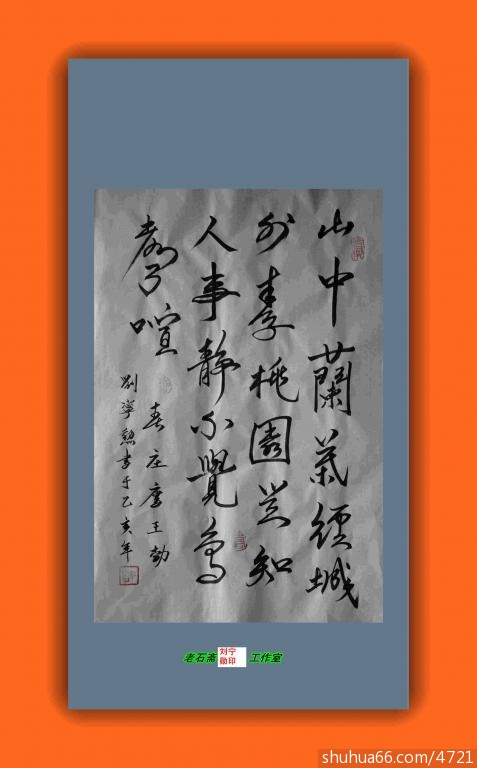 山中蘭葉徑城
外李桃園豈知
人事静不覺鳥
聲喧
春庄唐王勃
劉寧勲書于乙亥年
老石斋 刘宁 勋印 工作室
shuhua66.com/4721